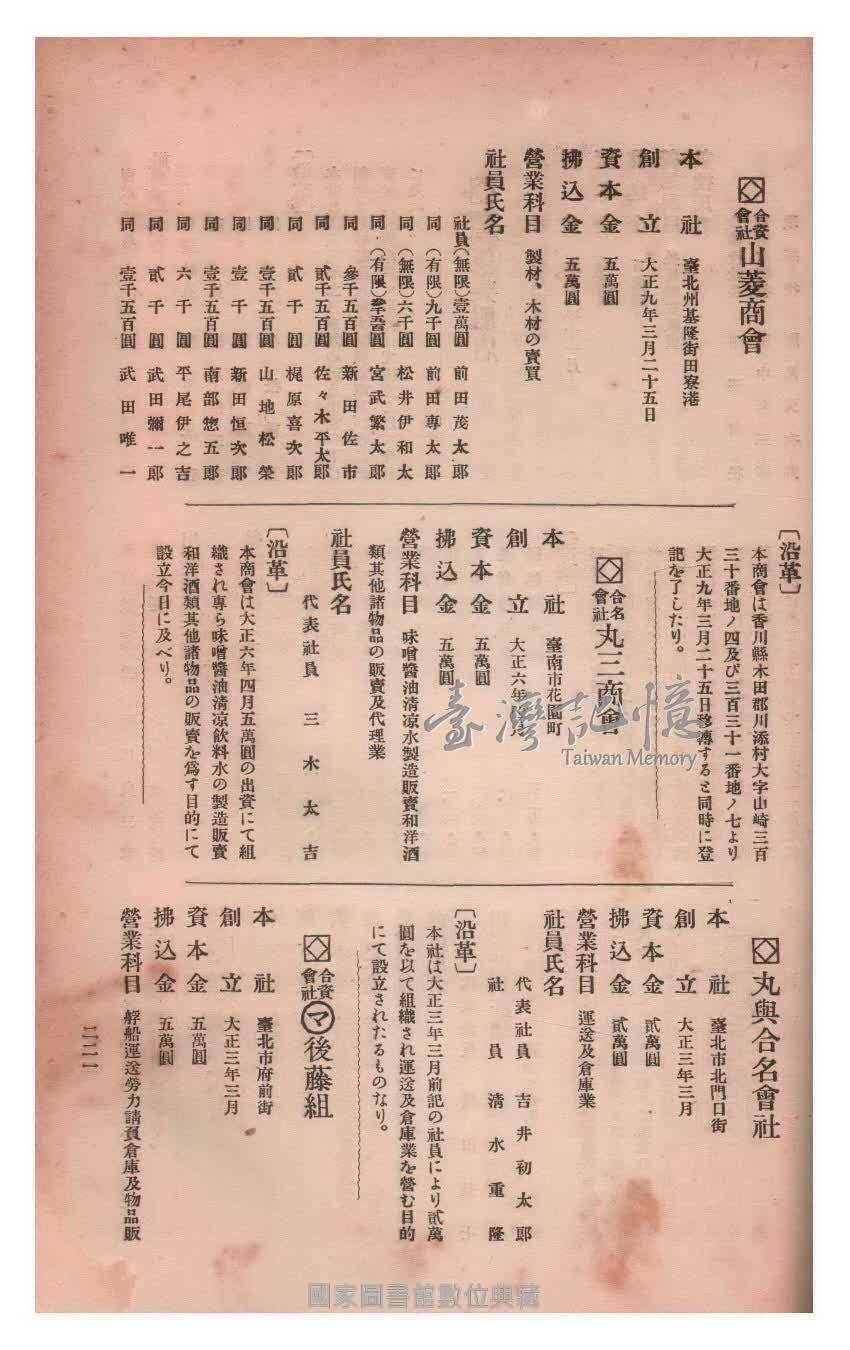 合資會社 山菱商會
本社 臺北州基隆街田寮港
創立 大正九年三月二十五日
資本金 五萬圓
拂込金 五萬圓
營業科目 製材、木材の賣買
社員氏名
社員(無限)壹萬圓 前田茂太郞
同(有限)九千圓 前田專太郞
同(無限)六千圓 松井伊和太
同(有限) 宮武繁太郞
同 參千五百圓 新田佐市
同 貳千五百圓 佐々木平太郞
同 貳千圓 梶原喜次郞
同 壹千五百圓 山地松榮
同 壹千圓 新田恒次郞
同 壹千五百圓 南部惣五郞
同 六千圓 平尾伊之吉
同 貳千圓 武田彌一郞
同 壹千五百圓 武田唯一
〔沿革〕
本商會は香川縣木田郡川添村大字山崎三百
三十番地ノ四及び三百三十一番地ノ七より
大正九年三月二十五日移轉すると同時に登
記を了したり。
合名會社 丸三商會
本社 臺南市花園町
創立 大正六年四月
資本金 五萬圓
拂込金 五萬圓
營業科目 味噌醬油淸凉水製造販賣和洋酒
類其他諸物品の販賣及代理業
社員氏名
代表社員 三木太吉
〔沿革〕
本商會は大正六年四月五萬圓の出資にて組
織され專ら味噌醬油淸凉飮料水の製造販賣
和洋酒類其他諸物品の販賣を爲す目的にて
設立今日に及べり。
丸與合名會社
本社 臺北市北門口街
創立 大正三年三月
資本金 貳萬圓
拂込金 貳萬圓
營業科目 運送及倉庫業
社員氏名
代表社員 吉井初太郞
社員 淸水重隆
〔沿革〕
本社は大正三年三月前記の社員により貳萬
圓を以て組織され運送及倉庫業を營む目的
にて設立されたるものなり。
合資會社 マ 後藤組
本社 臺北市府前街
創立 大正三年三月
資本金 五萬圓
拂込金 五萬圓
營業科目 艀船運送勞力請負倉庫及物品販
二二一
臺灣記憶
Taiwan Memory
國家圖書館數位典藏